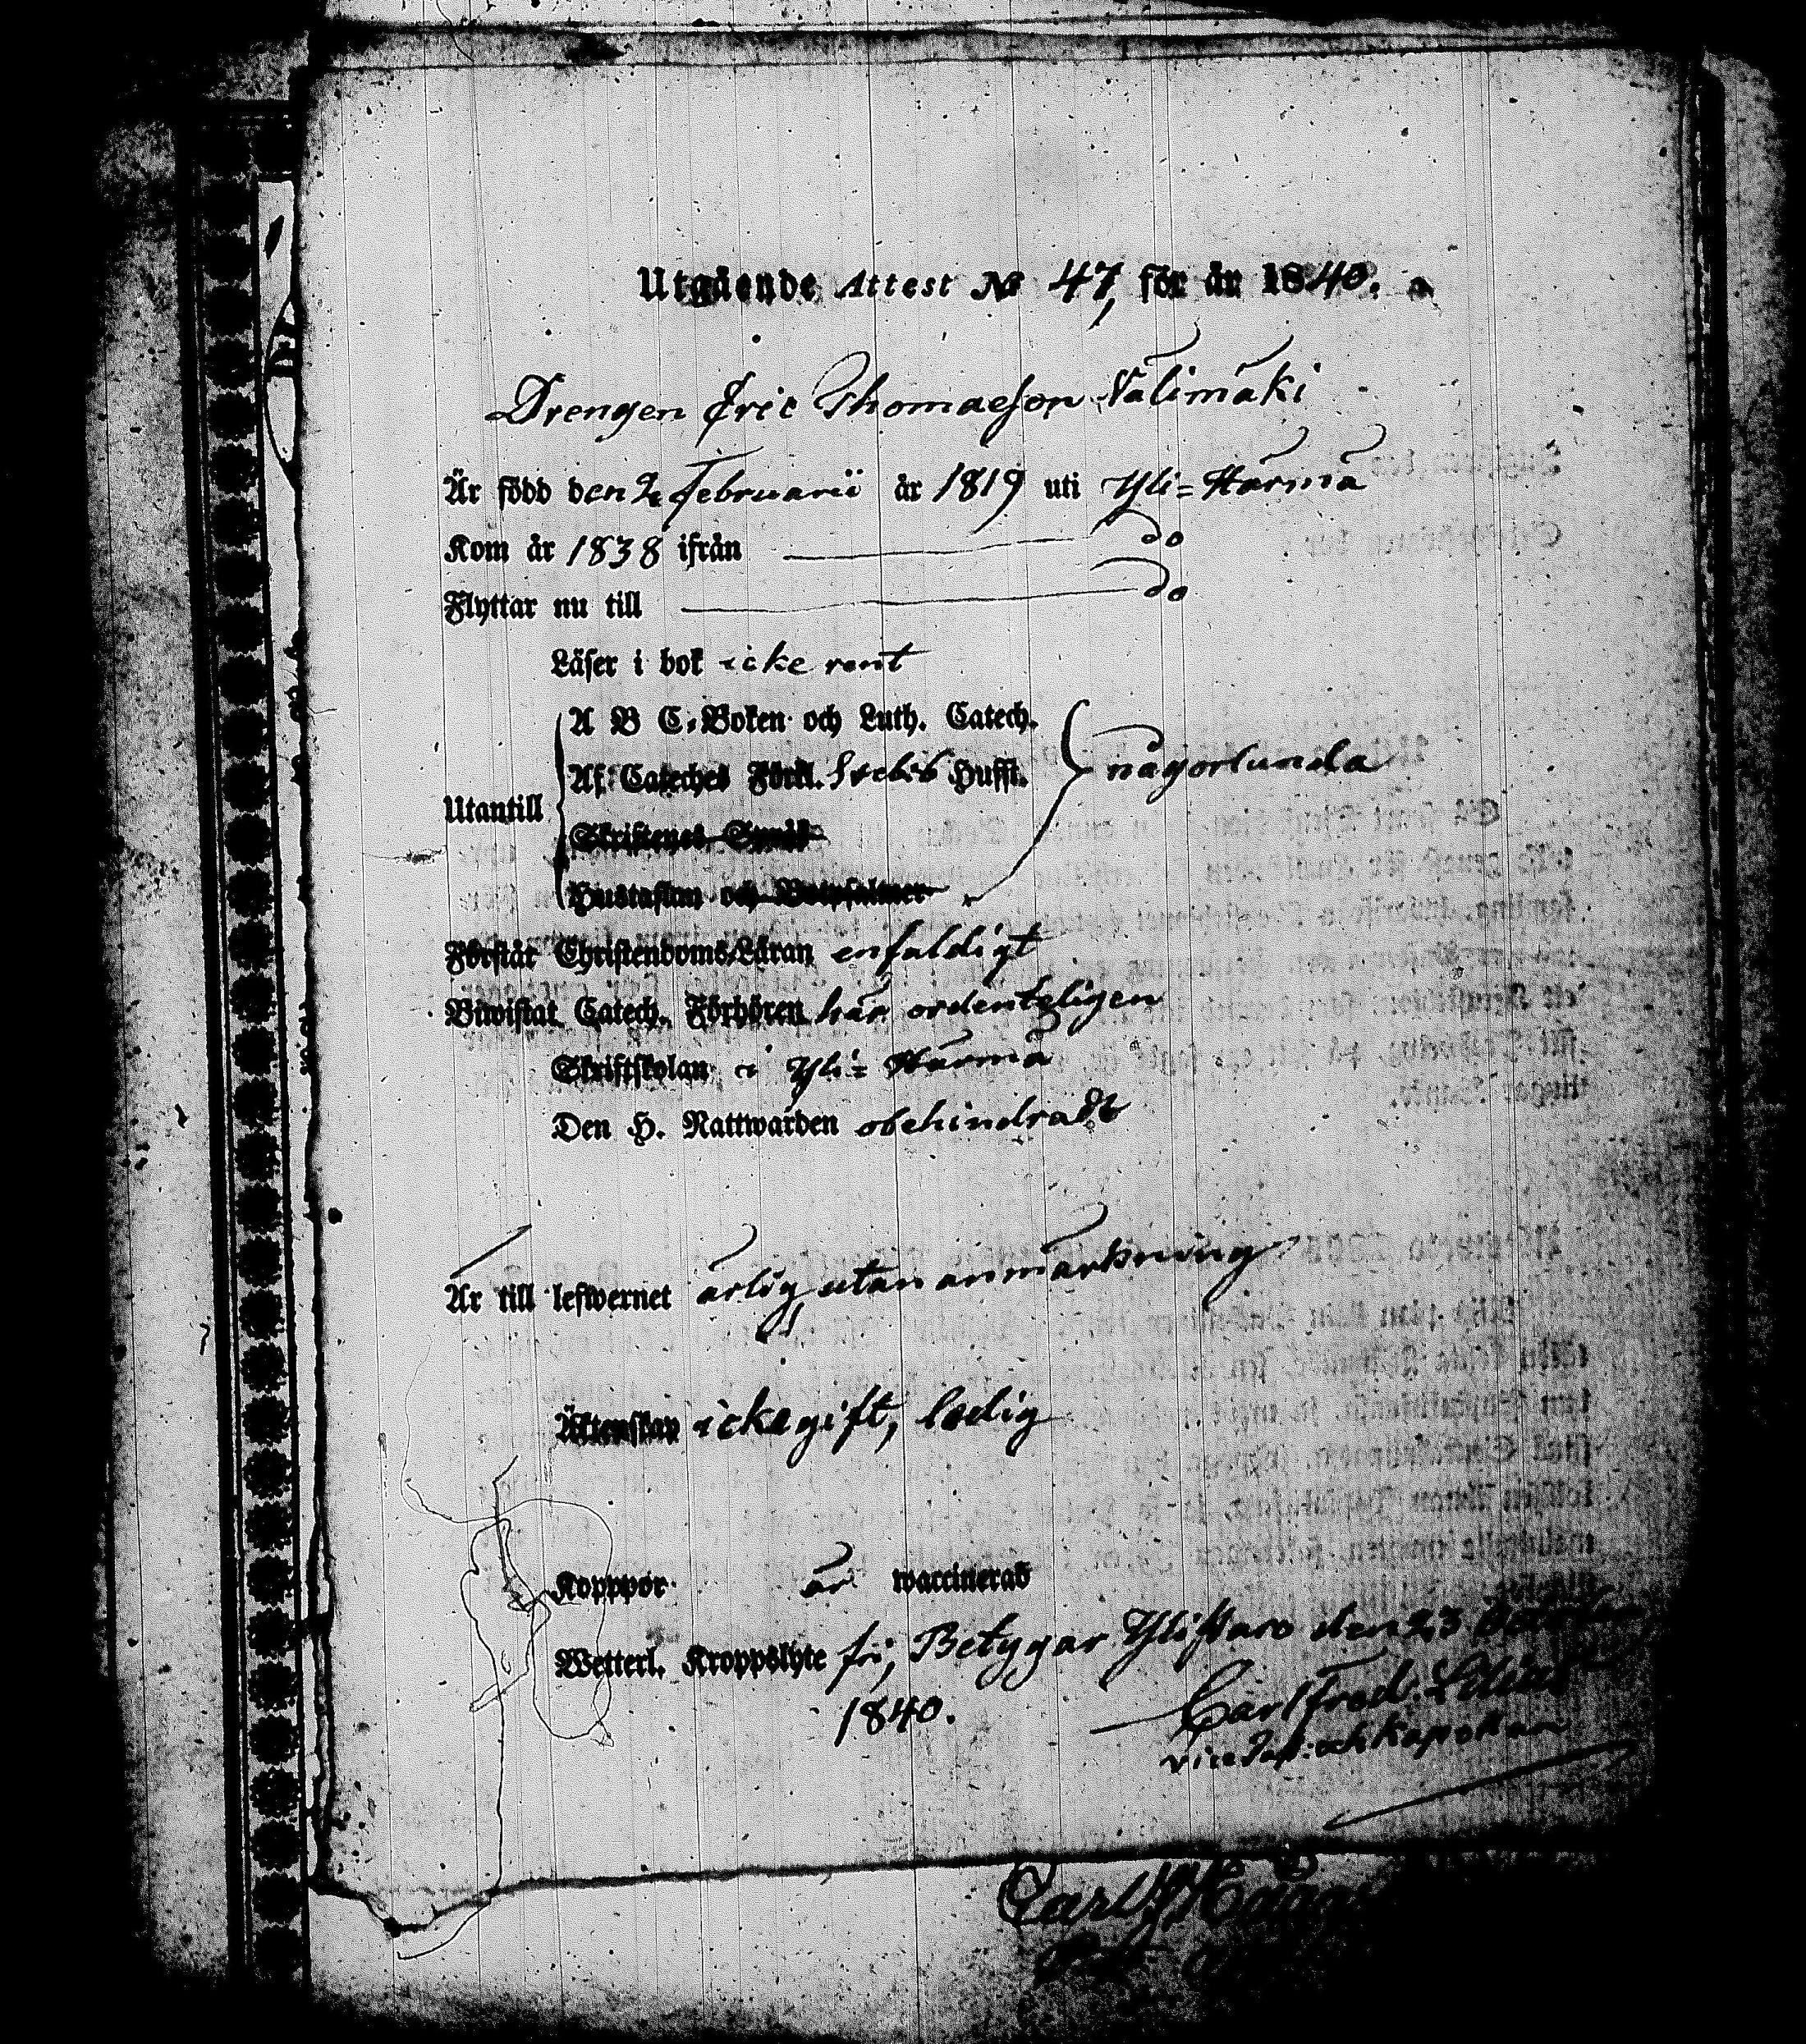 Utgående Attest № 47, för år 1840.
Drengen Eric Thomasson Välimäki
Är född den 2 Februarii år 1819 uti Yli=Härmä
Kom år 1838 ifrån do
Flyttar nu till do
Läser i bok icke rent
A B C-Boken och Luth. Catech.
Af Cateches Förkl. Svebib Husst. någorlunda
Utantill
Skriftenes Språk
Hustaflan och Botpsalmer
Förstår Christendoms-Läran enfaldigt
Biwistat Catech. Förhören här ordenteligen
Skriftskolan i Yli=Härmä
Den H. Nattwarden obehindradt
Är till lefwernet ärlig utan anmärkning
Äktenskap icke gift, ledig
Kopppor är waccinerad
Wetterl. Kroppslyte fri, Betygar Ylistaro den 23 October
1840. Carl Fred.
vice Past: och Kapellan
Carl